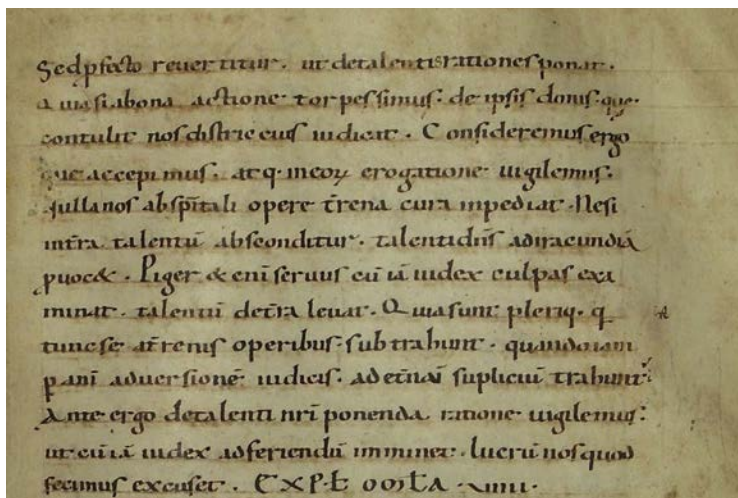 Sed ꝓfecto reuertitur. ut detalentisrationesponat.
Quiasiabona actione torpessimus: de ipsis donis. que.
contulit nos districtius iudicat. Consideremus ergo
que accepimus. atq. ineoꝝ erogatione uigilemus.
Nullanos abspītali opere t̄rena cura inpediat. Nesi
int̄ra talentū absconditur. talentidn̄s adiracundiā
ꝓuocet. Piger & eni seruus cū iā iudex culpas exa
minat. talentū det̄ra leuat. Quiasunt pleriq. q
tuncse at̄renis operibus: subtrahunt. quandoiam
ꝑ anī aduersionē iudicis. adet̄nā supliciū trahunt.
Ante ergo detalenti nr̄i ponenda ratione uigilemus:
ut cū iā iudex adferiendū imminet. lucrū nosquod
fecimus excuset. EXPƚ OMƚA .VIIII.